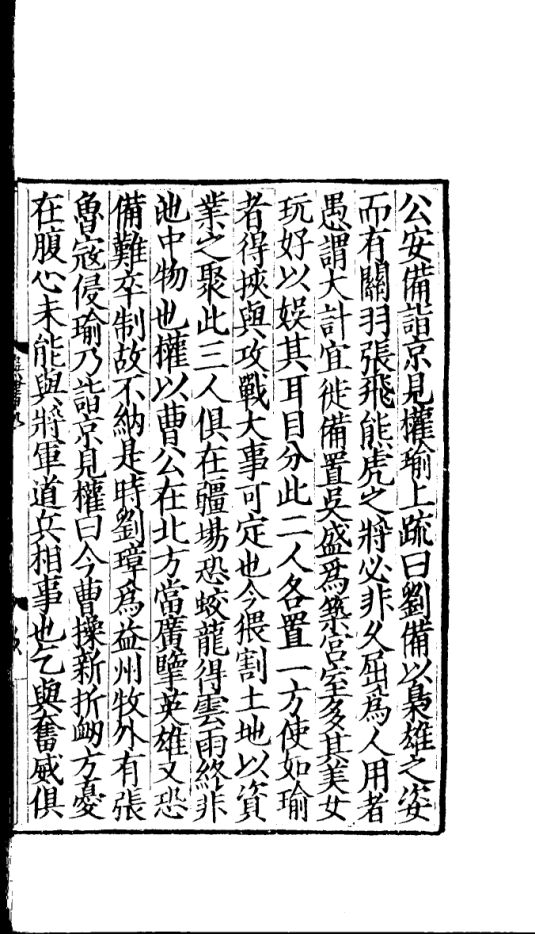 公安備詣京見權瑜上疏曰劉備以梟雄之姿
而有關羽張飛熊虎之將必非久屈爲人用者
愚謂大計宜徙備置吳盛爲築宮室多其美女
玩好以娛其耳目分此二人各置一方使如瑜
者得挾與攻戰大事可定也今猥割土地以資
業之聚此三人俱在疆埸恐蛟龍得雲雨終非
池中物也權以曹公在北方當廣擥英雄又恐
備難卒制故不納是時劉璋爲益州牧外有張
魯寇侵瑜乃詣京見權曰今曹操新折衂方憂
在腹心未能與將軍道兵相事也乞與奮威俱